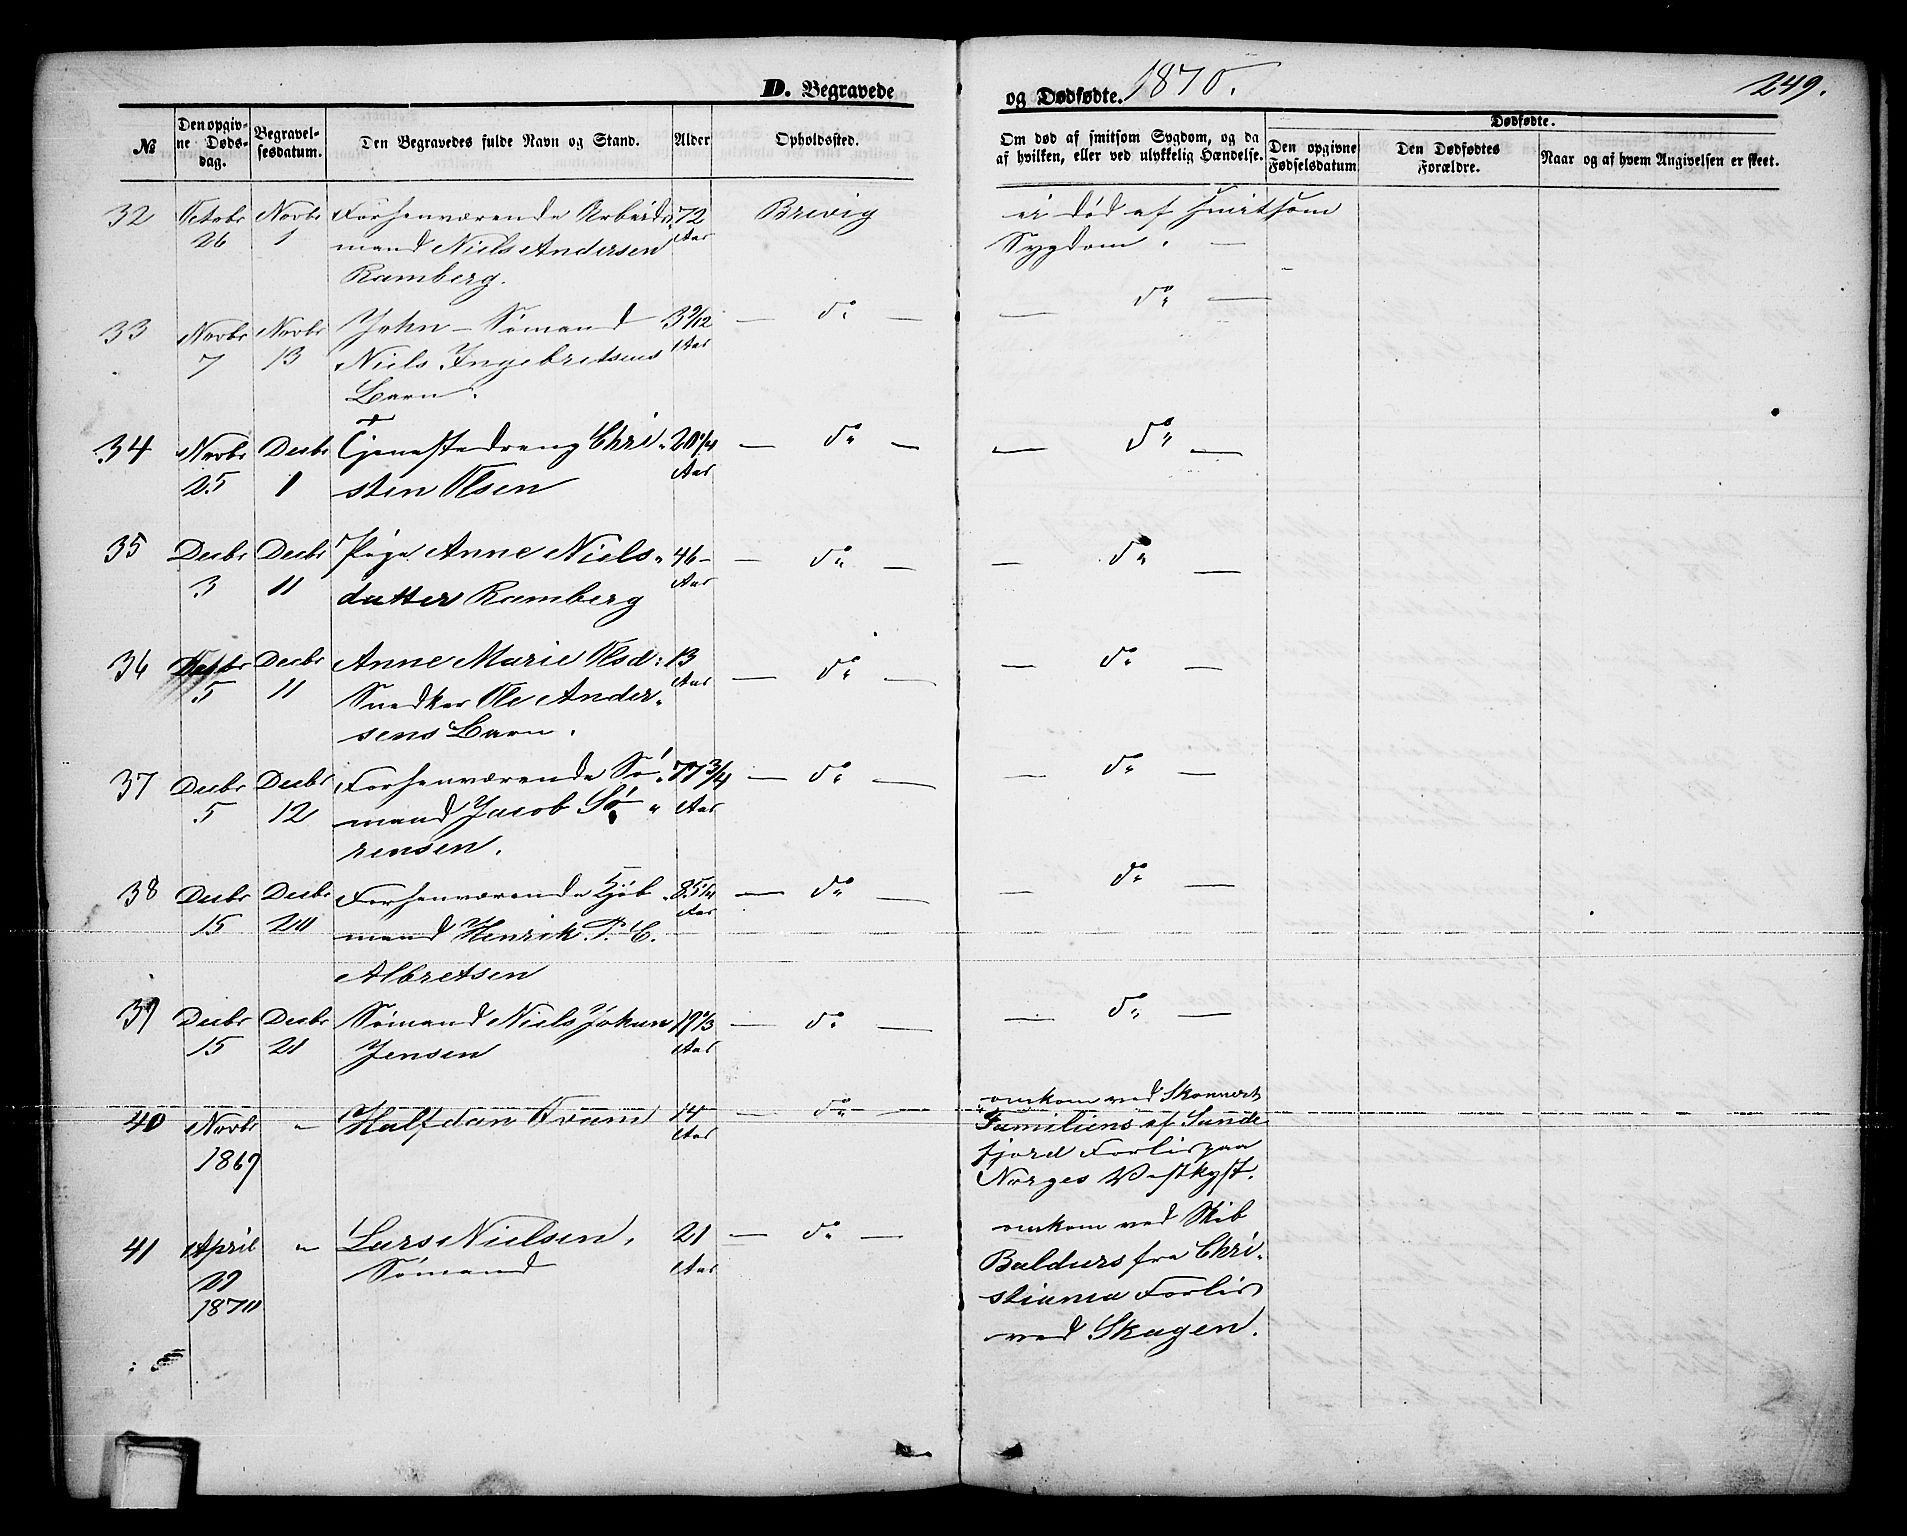 D. Begravede og Dødfødte. 1870. 249.
№ Den opgivne Dødsdag. Begravelsesdatum. Den Begravedes fulde Navn og Stand. Alder Opholdssted. Om død af smitsom Sygdom, og da af hvilken, eller ved ulykkelig Hændelse. Dødfødte. Den opgivne Fødselsdatum Den Dødfødtes Forældre. Naar og af hvem Angivelsen er skeet.
32 Octobr Novbr Forhenværende Arbeids- 72 Brevig ei død af smitsom
26 1 mand Niels Andersen Aar Sygdom. —
Ramberg.
33 Novbr Novbr John – Sømand 3 9/12 — do — — do —
7 13 Niels Ingebretsens Aar
Barn.
34 Novbr Decbr Tjenestedreng Chri- 20 1/4 — do — — do —
25 1 sten Olsen Aar
35 Decbr Decbr Pige Anne Niels- 46 — do — — do —
3 11 datter Ramberg Aar
36 Decbr Decbr Anne Marie Olsd: 13 — do — — do —
5 11 Snedker Ole Ander- Aar
sens Barn.
37 Decbr Decbr Forhenværende Sø- 77 3/4 — do — — do —
5 12 mand Jacob Sø- Aar
rensen.
38 Decbr Decbr Forhenværende Kjøb- 85 1/4 — do — — do —
15 20 mand Henrik P. C. Aar
Albretsen
39 Decbr Decbr Sømand Niels Johan 19 1/3 — do — — do —
15 21 Jensen Aar
40 Novbr " Halfdan Tvam 14 — do — omkom ved Skonnert
1869 Aar Familiens af Sande
fjord Forlis paa
Norges Vestkyst.
41 April " Lars Nielsen, 21 — do — omkom ved Skib
29 Sømand Aar Baldurs fra Chri-
1870 stiania Forlis
ved Skagen.